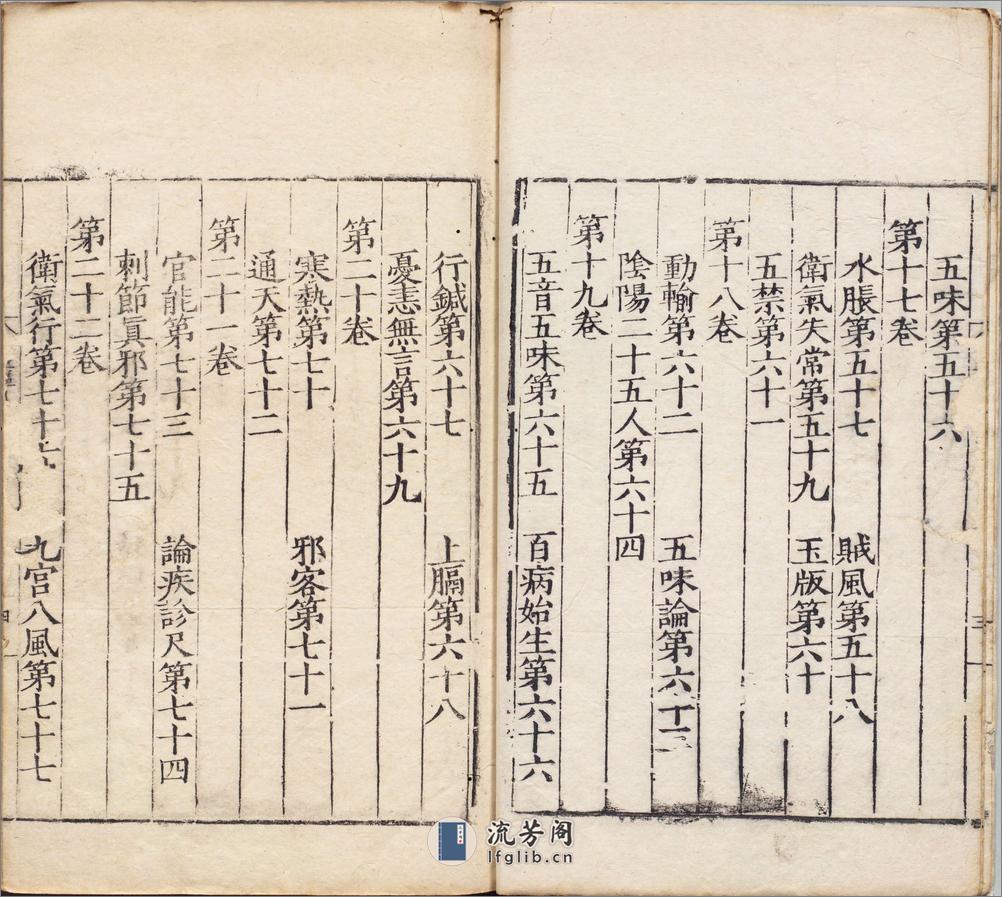 五味第五十六
第十七卷
水脹第五十七　賊風第五十八
衛氣失常第五十九　玉版第六十
五禁第六十一
第十八卷
動輸第六十二　五味論第六十三
陰陽二十五人第六十四
第十九卷
五音五味第六十五　百病始生第六十六
行鍼第六十七　上膈第六十八
憂恚無言第六十九
第二十卷
寒熱第七十　邪客第七十一
通天第七十二
第二十一卷
官能第七十三　論疾診尺第七十四
刺節眞邪第七十五
第二十二卷
衛氣行第七十六　九宮八風第七十七
流芳阁
lfglib.cn